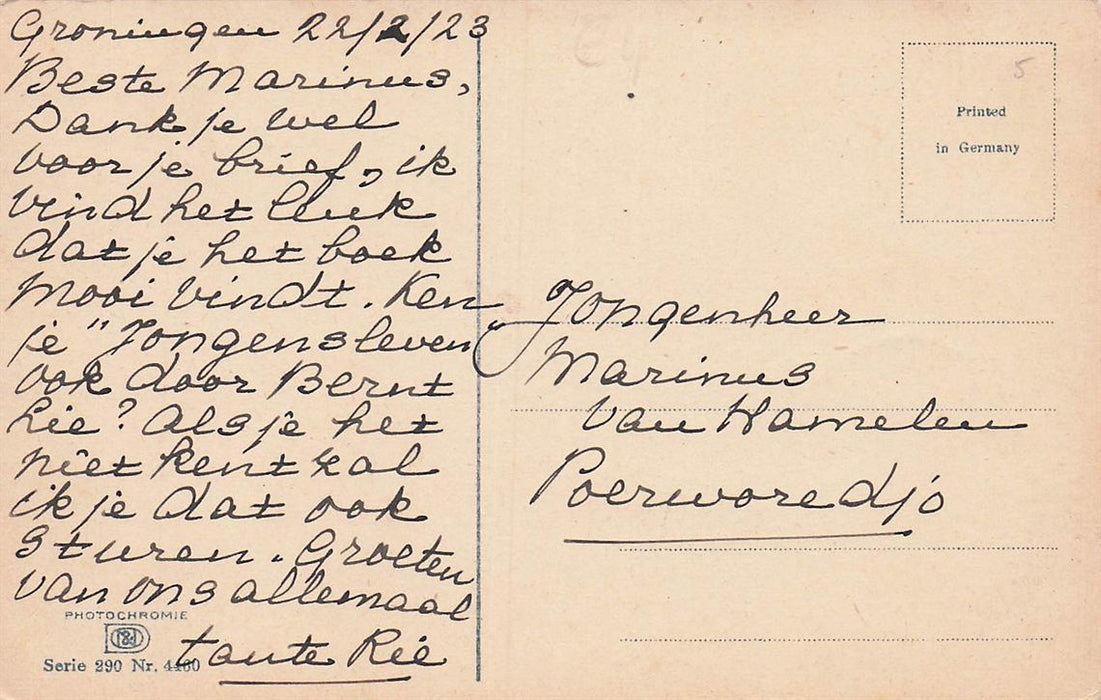 Groningen 22/2/23
Beste Marinus,
Dank je wel
voor je brief, ik
vind het leuk
dat je het boek
mooi vindt. Ken
je "Jongensleven"
ook door Bernt
Lie? Als je het
niet kent zal
ik je dat ook
sturen. Groeten
van ons allemaal
tante Rie
PHOTOCHROMIE
Serie 290 Nr. 4460
5
Printed
in Germany
Jongenheer
Marinus
van Hamelen
Poerworedjo